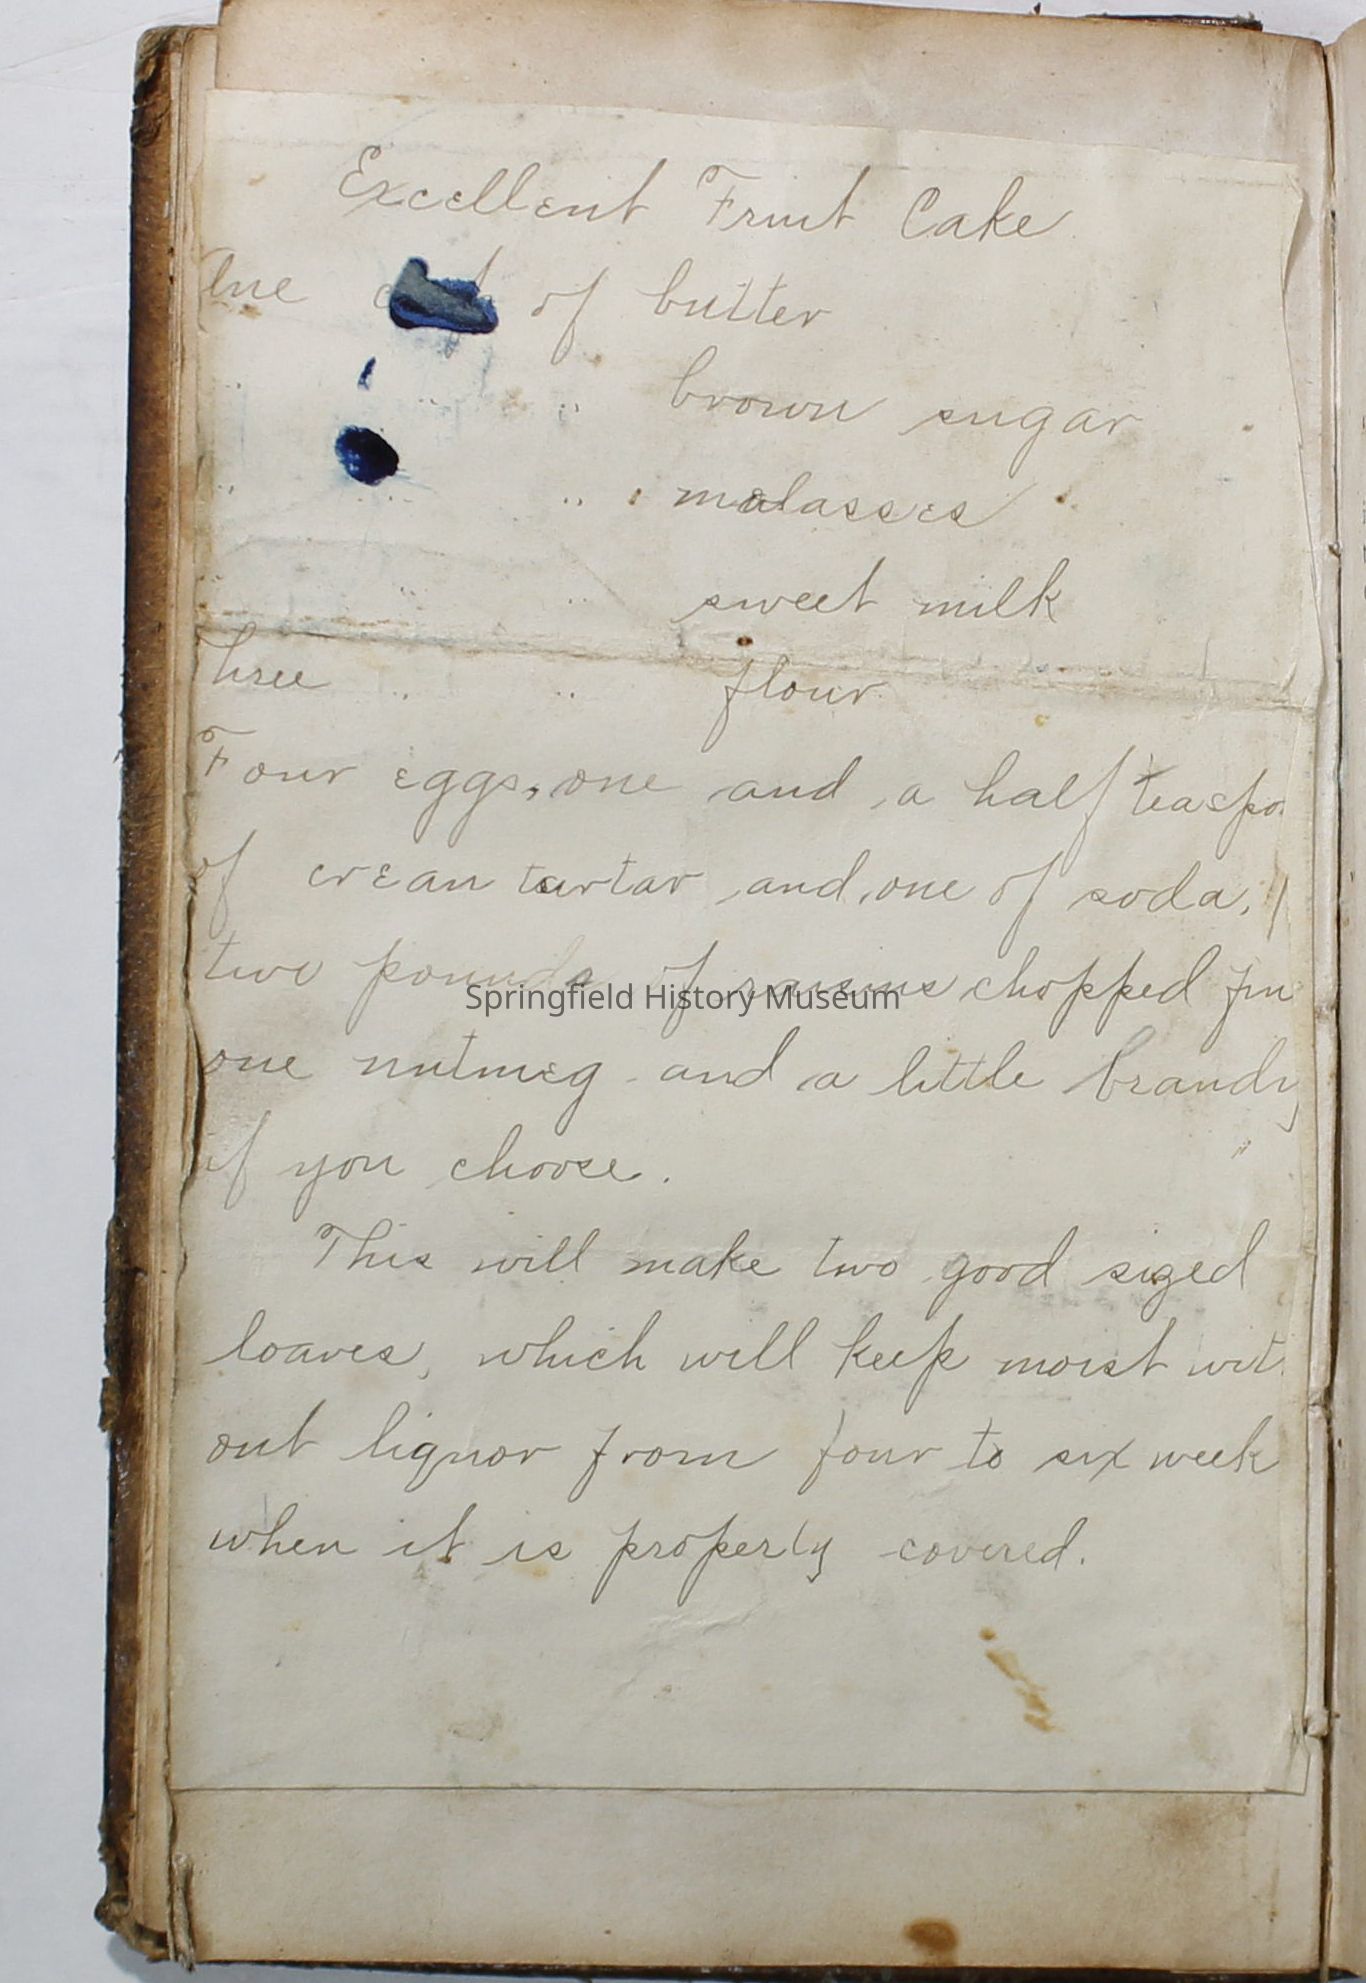 Excellent Fruit Cake
One of butter
" " " brown sugar
" " " molasses
" " sweet milk
Three " " flour
Four eggs, one and a half teaspo
of crean tartar and one of soda,
two pounds of raisins chopped fin
one nutmeg and a little brandy
if you choose.
This will make two good sized
loaves, which will keep moist wit
out liquor from four to six week
when it is properly covered.
Springfield History Museum